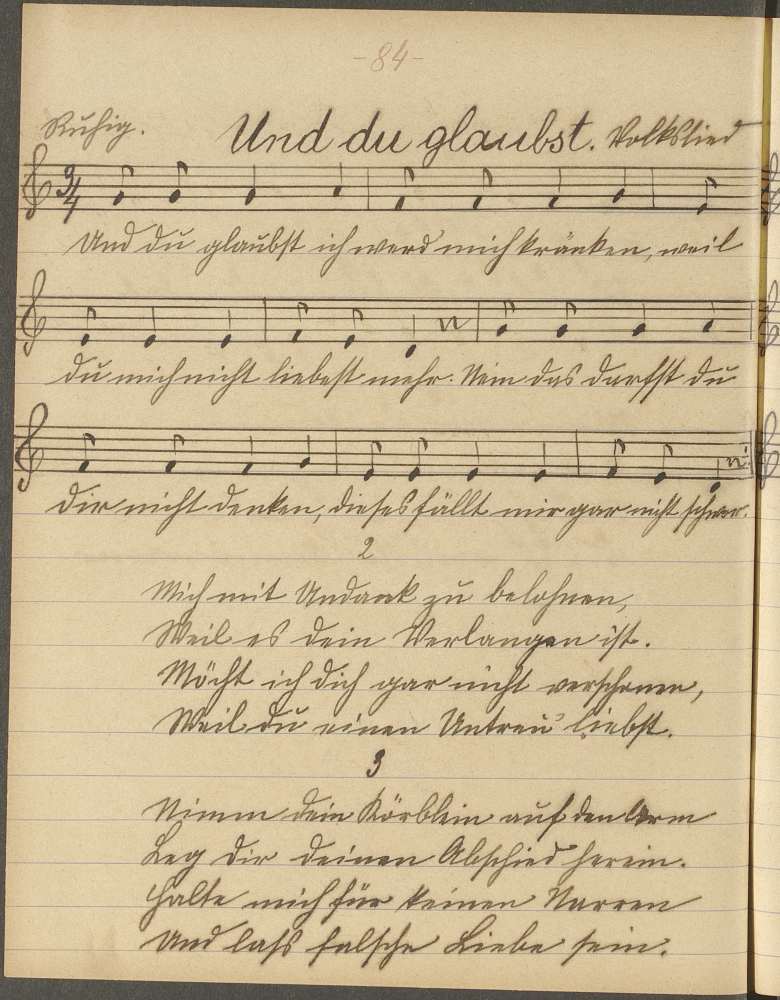 -84-
Ruhig. Und du glaubst. Volkslied
Und du glaubst ich werd mich kränken, weil
du mich nicht liebest mehr. Nein das darfst du
dir nicht denken, dieses fällt mir gar nicht schwer.
2
Mich mit Undank zu belohnen,
Weil es dein Verlangen ist.
Möcht ich dich gar nicht verschonen,
Weil du einen Untreu' liebst.
3
Nimm dein Körblein auf den Arm
Leg dir deinen Abschied herein.
Halte mich für keinen Narren
Und lass falsche Liebe sein.